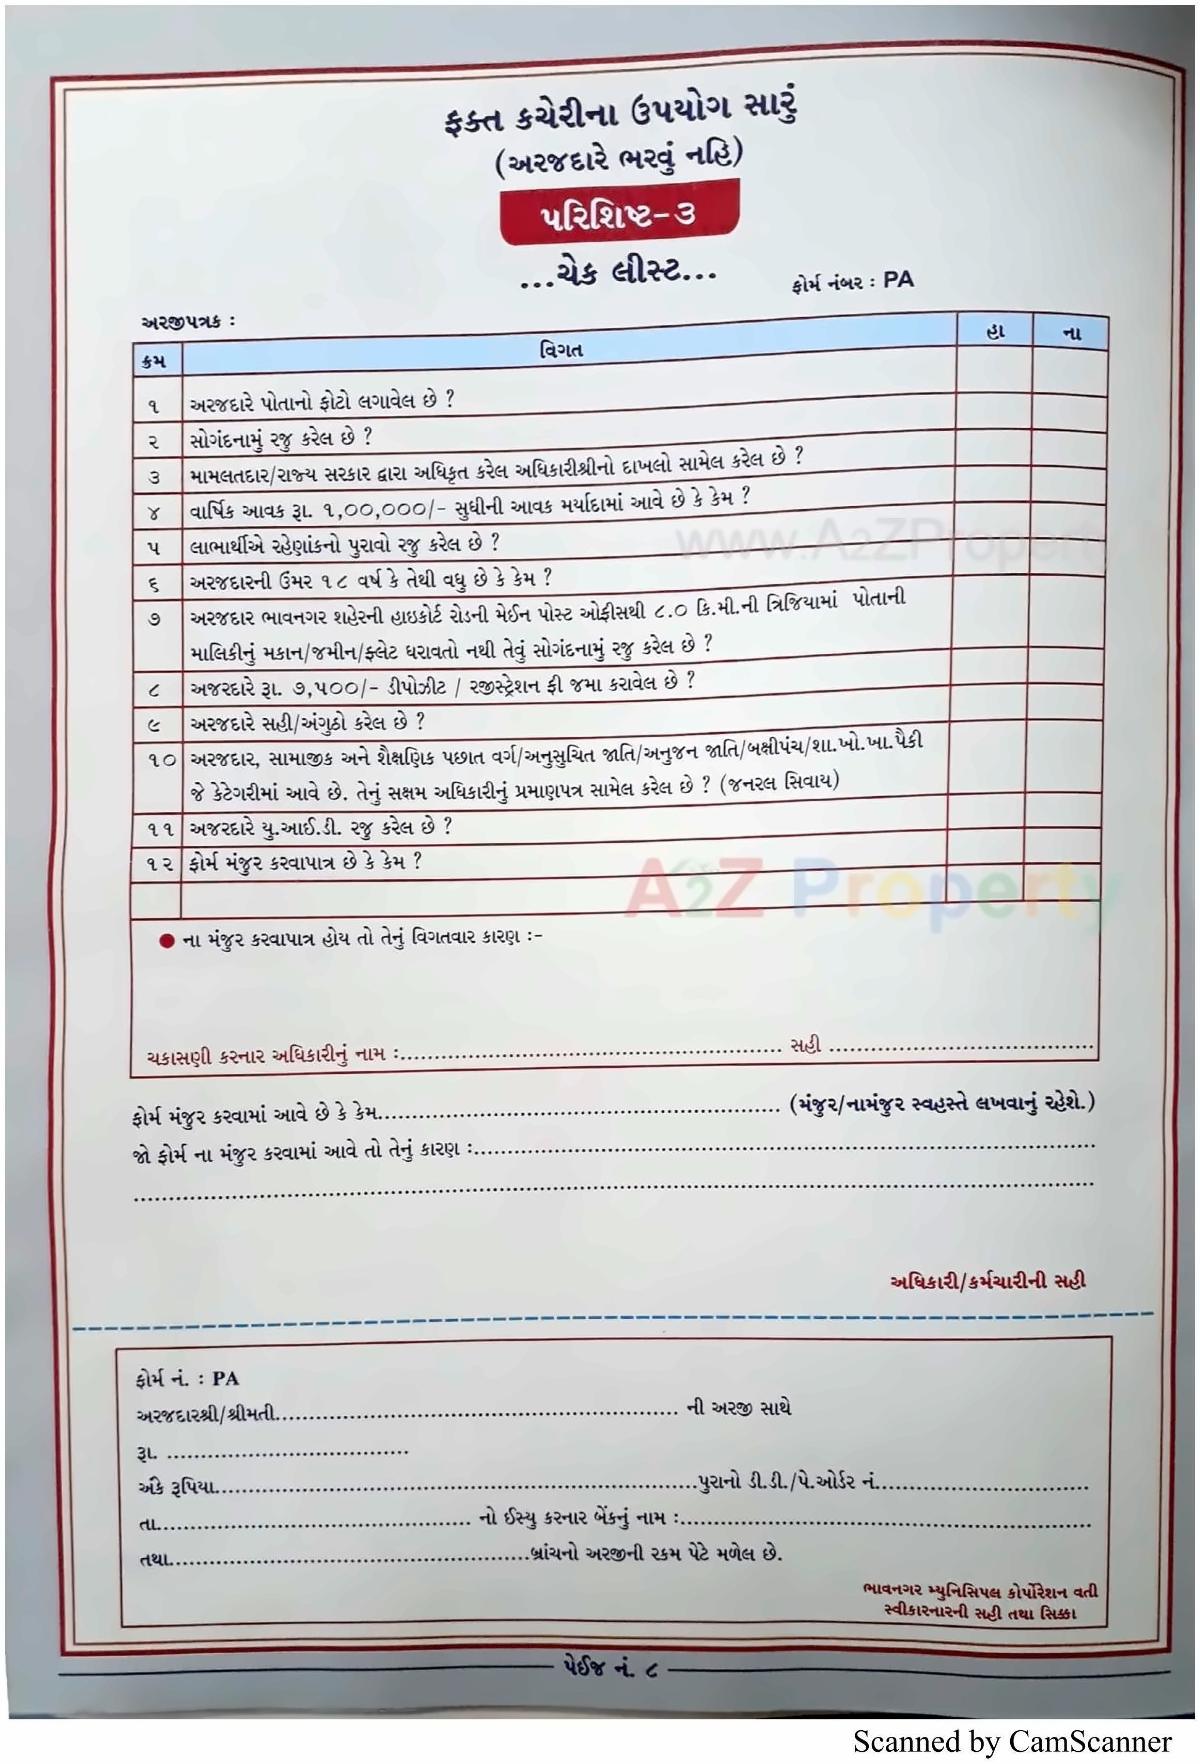 ફક્ત કચેરીના ઉપયોગ સારું
(અરજદારે ભરવું નહિ)
પરિશિષ્ટ-૩
...ચેક લીસ્ટ...
ફોર્મ નંબર : PA
અરજીપત્રક :
ક્રમ વિગત હા ના
૧ અરજદારે પોતાનો ફોટો લગાવેલ છે ?
૨ સોગંદનામું રજુ કરેલ છે ?
૩ મામલતદાર/રાજ્ય સરકાર દ્વારા અધિકૃત કરેલ અધિકારીશ્રીનો દાખલો સામેલ કરેલ છે ?
૪ વાર્ષિક આવક રૂા. ૧,૦૦,૦૦૦/- સુધીની આવક મર્યાદામાં આવે છે કે કેમ ?
www.A2ZProperty
૫ લાભાર્થીએ રહેણાંકનો પુરાવો રજુ કરેલ છે ?
૬ અરજદારની ઉંમર ૧૮ વર્ષ કે તેથી વધુ છે કે કેમ ?
૭ અરજદાર ભાવનગર શહેરની હાઇકોર્ટ રોડની મેઈન પોસ્ટ ઓફીસથી ૮.૦ કિ.મી.ની ત્રિજિયામાં પોતાની
માલિકીનું મકાન/જમીન/ફ્લેટ ધરાવતો નથી તેવું સોગંદનામું રજુ કરેલ છે ?
૮ અજરદારે રૂા. ૭,૫૦૦/- ડીપોઝીટ / રજીસ્ટ્રેશન ફી જમા કરાવેલ છે ?
૯ અરજદારે સહી/અંગુઠો કરેલ છે ?
૧૦ અરજદાર, સામાજીક અને શૈક્ષણિક પછાત વર્ગ/અનુસુચિત જાતિ/અનુજન જાતિ/બક્ષીપંચ/શા.ખો.ખા.પૈકી
જે કેટેગરીમાં આવે છે. તેનું સક્ષમ અધિકારીનું પ્રમાણપત્ર સામેલ કરેલ છે ? (જનરલ સિવાય)
૧૧ અજરદારે યુ.આઈ.ડી. રજુ કરેલ છે ?
૧૨ ફોર્મ મંજુર કરવાપાત્ર છે કે કેમ ?
A2Z Property
● ના મંજુર કરવાપાત્ર હોય તો તેનું વિગતવાર કારણ :-
ચકાસણી કરનાર અધિકારીનું નામ :.................... સહી ....................
ફોર્મ મંજુર કરવામાં આવે છે કે કેમ.................... (મંજુર/નામંજુર સ્વહસ્તે લખવાનું રહેશે.)
જો ફોર્મ ના મંજુર કરવામાં આવે તો તેનું કારણ :....................
....................
અધિકારી/કર્મચારીની સહી
ફોર્મ નં. : PA
અરજદારશ્રી/શ્રીમતી.................... ની અરજી સાથે
રૂા. ....................
અંકે રૂપિયા....................પુરાનો ડી.ડી./પે.ઓર્ડર નં....................
તા.................... નો ઈસ્યુ કરનાર બેંકનું નામ :....................
તથા....................બ્રાંચનો અરજીની રકમ પેટે મળેલ છે.
ભાવનગર મ્યુનિસિપલ કોર્પોરેશન વતી
સ્વીકારનારની સહી તથા સિક્કા
પેઈજ નં. ૮
Scanned by CamScanner